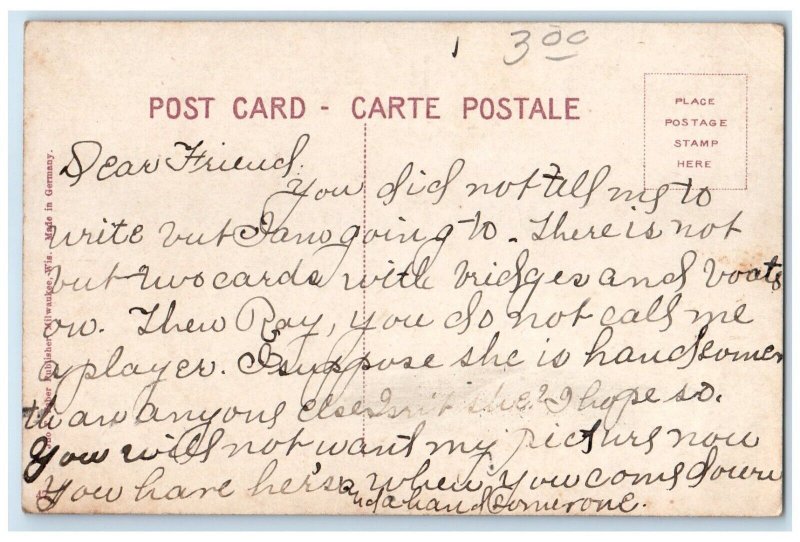 1 3 00
POST CARD - CARTE POSTALE
PLACE
POSTAGE
STAMP
HERE
Dear Friend.
You did not tell me to
write but I am going to. There is not
but two cards with bridges and boats
on. Then Ray, you do not call me
a player. I suppose she is handsomer
than anyone else Isn't she? I hope so.
You will not want my picture now
you have her's when you come down
and a handsomer one.
Publisher, Milwaukee, Wis. Made in Germany.